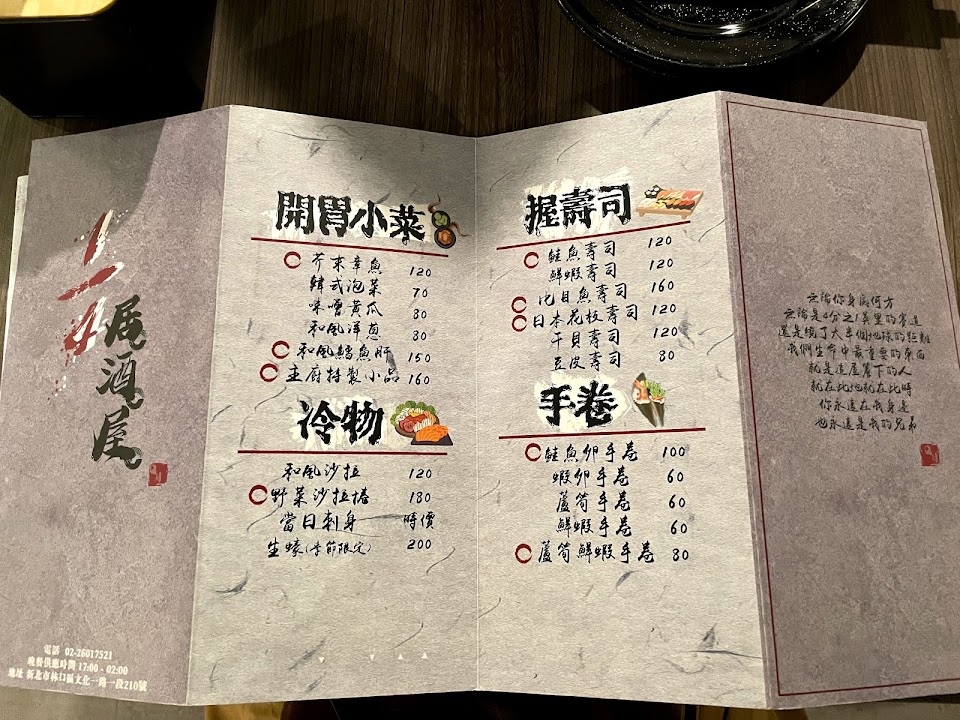 居酒屋
電話 02-26017521
晚餐供應時間 17:00 - 02:00
地址 新北市林口區文化一路一段210號
開胃小菜
芥末章魚 120
韓式泡菜 70
味噌黃瓜 80
和風洋蔥 80
和風鱈魚肝 150
主廚特製小品 160
冷物
和風沙拉 120
野菜沙拉捲 180
當日刺身 時價
生蠔(季節限定) 200
握壽司
鮭魚壽司 120
鮮蝦壽司 120
比目魚壽司 160
日本花枝壽司 120
干貝壽司 120
豆皮壽司 80
手卷
鮭魚卵手卷 100
蝦卵手卷 60
蘆筍手卷 60
鮮蝦手卷 60
蘆筍鮮蝦手卷 80
無論你身處何方
無論是4分之1英里的賽道
還是繞了大半個地球的距離
我們生命中最重要的東西
就是這屋簷下的人
就在此地就在此時
你永遠在我身邊
也永遠是我的兄弟